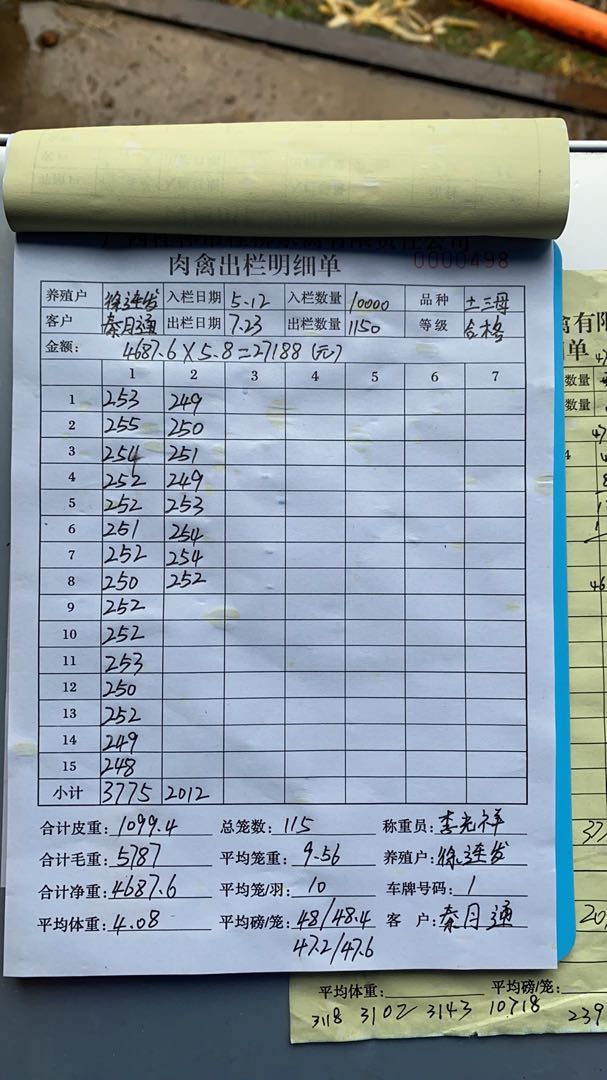 肉禽出栏明细单
0000498
养殖户 徐连发 入栏日期 5.12 入栏数量 10000 品种 土三母
客户 秦月通 出栏日期 7.23 出栏数量 1150 等级 合格
金额: 4687.6×5.8=27188(元)
1 2 3 4 5 6 7
1 253 249
2 255 250
3 254 251
4 252 249
5 252 253
6 251 254
7 252 254
8 250 252
9 252
10 252
11 253
12 250
13 252
14 249
15 248
小计 3775 2012
合计皮重: 1099.4 总笼数: 115 称重员: 李光祥
合计毛重: 5787 平均笼重: 9.56 养殖户: 徐连发
合计净重: 4687.6 平均笼/羽: 10 车牌号码: 1
平均体重: 4.08 平均磅/笼: 48/48.4 客 户: 秦月通
47.2/47.6
禽有限
单
数量
数量
平均体重: 平均磅/笼:
3118 3102 3143 10718 239